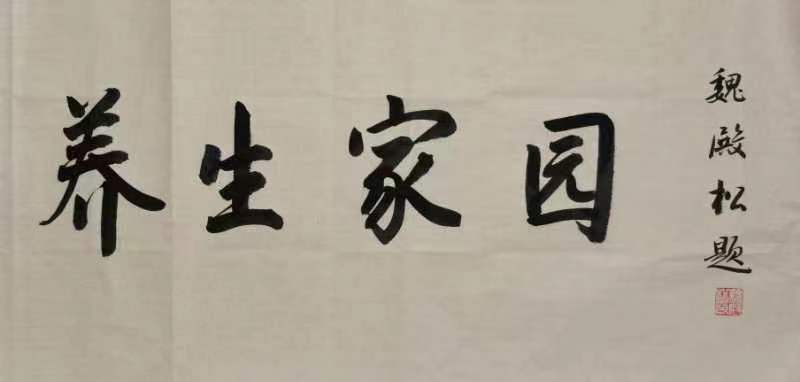 养生家园
魏殿松题